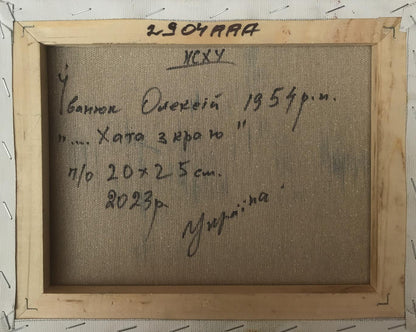 2904AAA
НСХУ
Іванюк Олексій 1954р.н.
"... Хата з краю"
п/о 20x25 см.
2023р
Україна